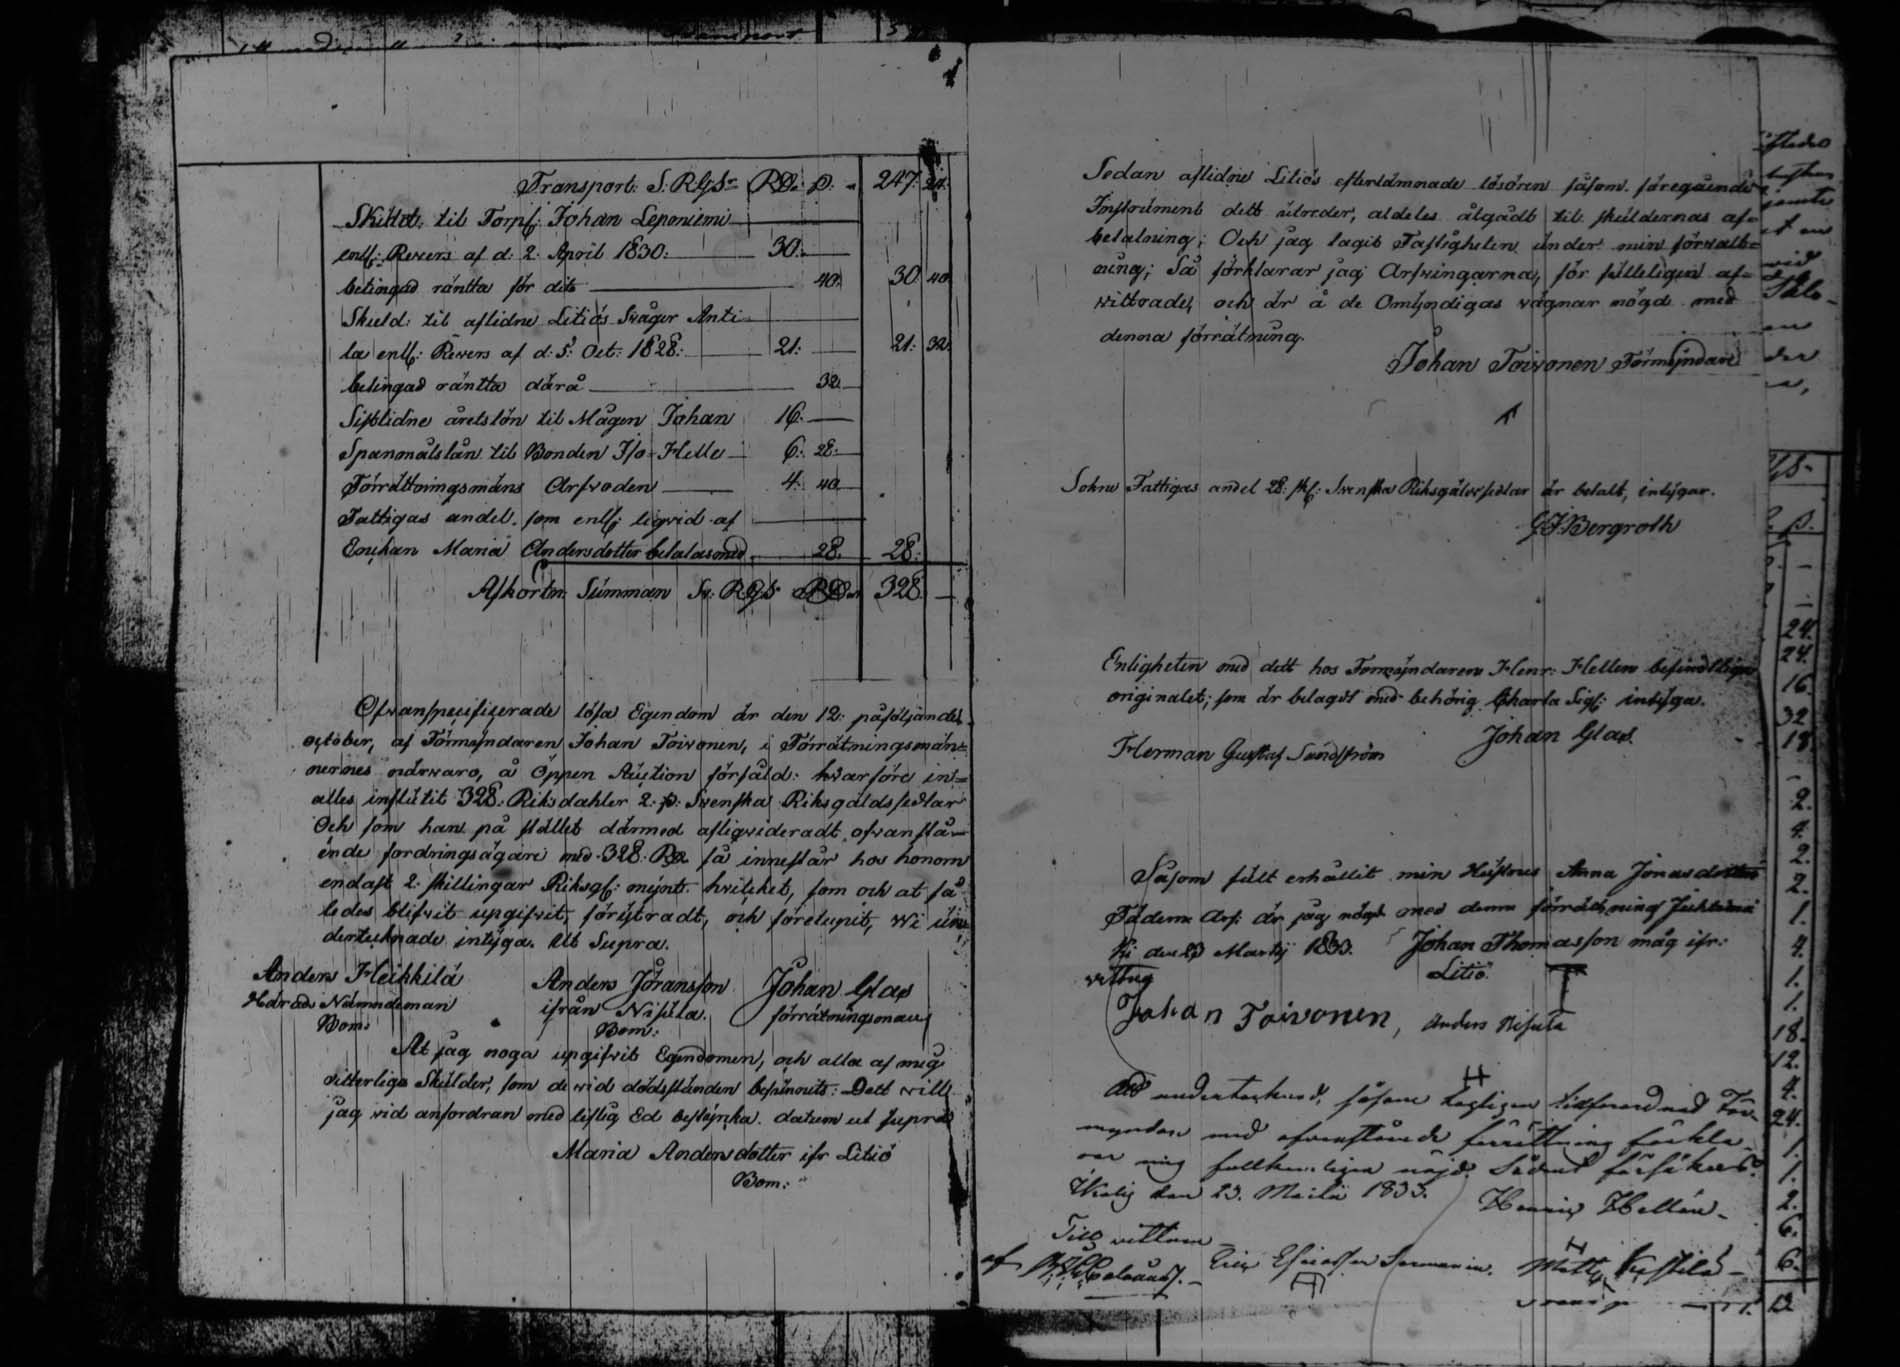 Transport: S: RGS RD: β: 247: 24:
Skuld: til Torp: Johan Leponiemi
enl: Revers af d: 2: April 1830: 30:
betingad räntta för dito 40: 30 40
Skuld: til aflidne Litiös Svåger Anti
la enl: Revers af d: 5: Oct: 1828: 21: 21: 32:
betingad räntta därå 32
Sistlidne åretslön til Mågen Johan 16:
Spanmålslån til Bonden I/o Helle 6: 28:
Förrättningsmäns Arfvoden 4: 40
Fattigas andel, som enl: liqvid af
Enkan Maria Andersdotter betalas med 28. 28:
Afkortn Summan Sv: RGS RD 328
Ofvanspecificerade lösa Egendom är den 12: påföljande
october, af Förmyndaren Johan Toivonen, i Förrätningsmän=
nernes närvaro, å Öppen Auction försåld: hvarföre in=
alles influtit 328: Riksdahler 2: β: Svenska Riksgäldssedlar
Och som han på stället därmed afliqvideradt ofvanstå=
ende fordringsägare med 328 RD så innestår hos honom
endast 2: skillingar Riksg: mynt hvilcket, som och at så
ledes blifvit upgifvit, försports, och förelupit, wi un
dertecknade intyga. Ut Supra.
Anders Heikkilä Anders Jöransson Johan Glas
Härads Nämndeman ifrån Nisula. förrätningsman
Bom: Bom:
At jag noga upgifvit Egendomen, och alla af mig
vitterliga Skulder, som de vid dödsstunden befunnits: Dett will
jag vid anfordran med liflig Ed bestyrcka. datum ut supra
Maria Andersdotter ifr Litiö
Bom:
Sedan aflidne Litiös efterlämnade lösören såsom föregående
Instrument dett utreder, aldeles åtgådt till skuldernas af=
betalning; Och jag tagit Fastigheten under min förvalt=
ning; Så förklarar jag Arfvingarna, för fulleligen af=
wittrade, och är å de Omyndigas vägnar nögd med
denna förrätning.
Johan Toivonen Förmyndare
Sokne Fattigas andel 28: sk: Svenska Riksgäldssedlar är betalt, intygar.
G J Bergroth
Enligheten med dett hos Formyndaren Henr: Hellen befindtliga
originalet; som är belagdt med behörig Charta Sig: intyga.
Johan Glas
Herman Gustaf Sundström
Såsom fullt erhållit min Hustrus Anna Jonasdotter
Fäderne Arf: är jag nögd med denna förrätning
den 23 Martij 1833. Johan Thomasson måg ifr:
vittna Litiö
Johan Toivonen, Anders Nisula
undertecknad, såsom lagligen tillförordnad För=
myndare med ofvanstående förrättning förkla=
rar mig fullkomligen nöjd.
den 23. Martii 1833.
Henric Hellén
Till vittnen
af Eric Ersson